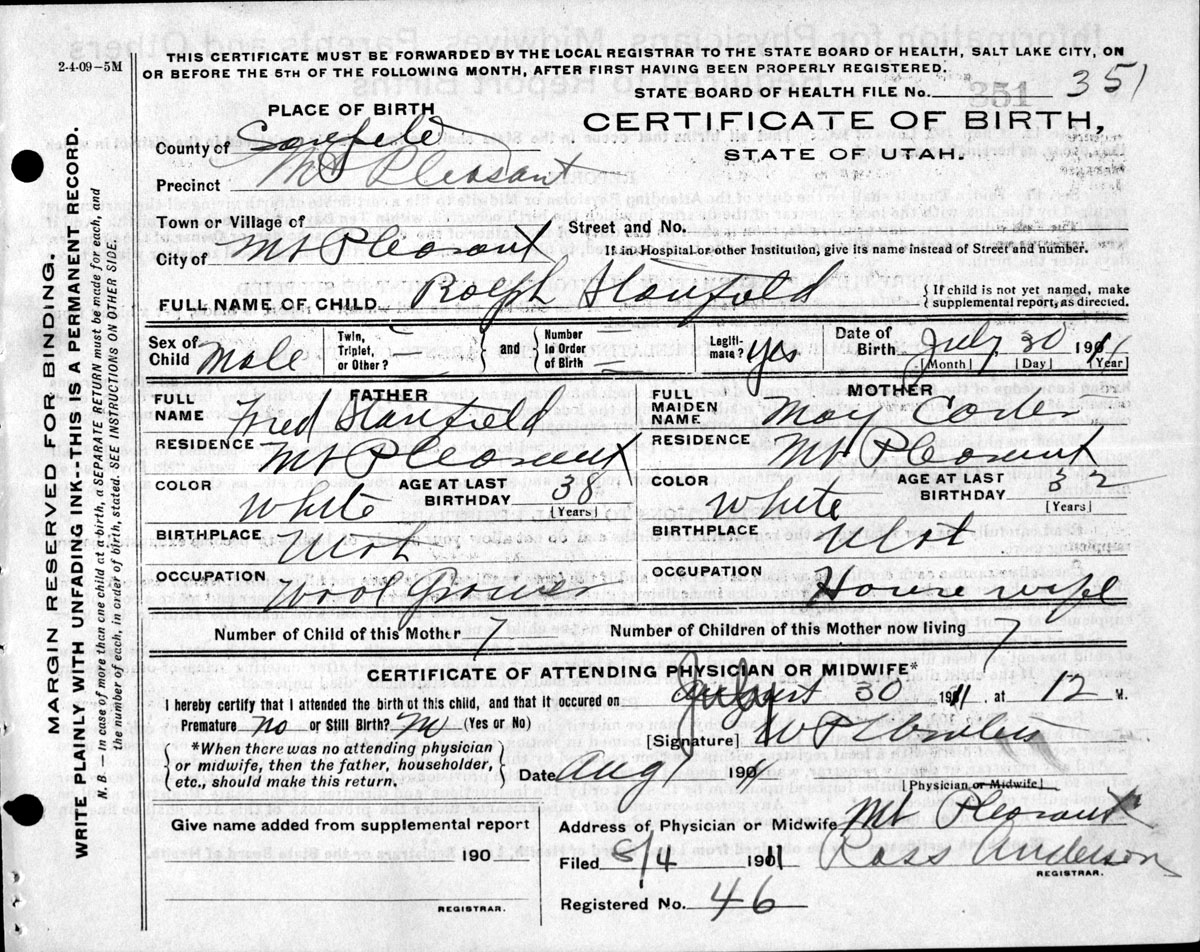 2-4-09-5M
THIS CERTIFICATE MUST BE FORWARDED BY THE LOCAL REGISTRAR TO THE STATE BOARD OF HEALTH, SALT LAKE CITY, ON
OR BEFORE THE 5TH OF THE FOLLOWING MONTH, AFTER FIRST HAVING BEEN PROPERLY REGISTERED.
STATE BOARD OF HEALTH FILE No. 351 351
PLACE OF BIRTH
CERTIFICATE OF BIRTH,
STATE OF UTAH.
County of
Precinct Mt Pleasant
Town or Village of
Street and No.
City of Mt Pleasant
If in Hospital or other Institution, give its name instead of Street and number.
FULL NAME OF CHILD Ralph Stanfield
{ If child is not yet named, make
supplemental report, as directed.
Sex of Child Male
Twin, Triplet, or Other? – } and { Number In Order of Birth =
Legitimate? yes
Date of Birth July 30 1911
[Month] [Day] [Year]
FATHER
FULL NAME Fred Stanfield
RESIDENCE Mt Pleasant
COLOR White
AGE AT LAST BIRTHDAY 38
[Years]
BIRTHPLACE Utah
OCCUPATION Wool Grower
MOTHER
FULL MAIDEN NAME May
RESIDENCE Mt Pleasant
COLOR White
AGE AT LAST BIRTHDAY 32
[Years]
BIRTHPLACE Utah
OCCUPATION House wife
Number of Child of this Mother 7
Number of Children of this Mother now living 7
CERTIFICATE OF ATTENDING PHYSICIAN OR MIDWIFE*
I hereby certify that I attended the birth of this child, and that it occured on August July 30 1911 at 12 M.
Premature no or Still Birth? no (Yes or No)
[Signature]
{ *When there was no attending physician
or midwife, then the father, householder,
etc., should make this return. }
Date Aug 1 1911
[Physician or Midwife]
Give name added from supplemental report
190
REGISTRAR.
Address of Physician or Midwife Mt Pleasant
Filed 8/4 1911 Ross Anderson
REGISTRAR.
Registered No. 46
MARGIN RESERVED FOR BINDING.
WRITE PLAINLY WITH UNFADING INK--THIS IS A PERMANENT RECORD.
N. B. — In case of more than one child at a birth, a SEPARATE RETURN must be made for each, and
the number of each, in order of birth, stated. SEE INSTRUCTIONS ON OTHER SIDE.